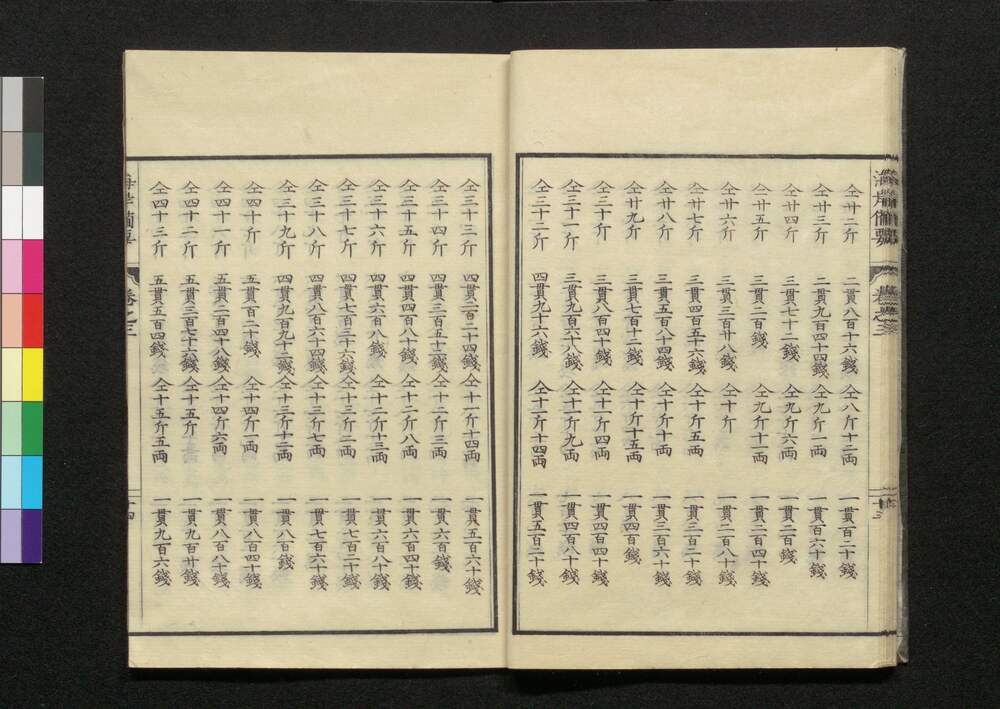 海岸備要 巻之三 十三
仝廿二斤 二貫八百十六錢 仝八斤十二両 一貫百二十錢
仝廿三斤 二貫九百四十四錢 仝九斤一両 一貫百六十錢
仝廿四斤 三貫七十二錢 仝九斤六両 一貫二百錢
仝廿五斤 三貫二百錢 仝九斤十一両 一貫二百四十錢
仝廿六斤 三貫三百廿八錢 仝十斤 一貫二百八十錢
仝廿七斤 三貫四百五十六錢 仝十斤五両 一貫三百二十錢
仝廿八斤 三貫五百八十四錢 仝十斤十両 一貫三百六十錢
仝廿九斤 三貫七百十二錢 仝十斤十五両 一貫四百錢
仝三十斤 三貫八百四十錢 仝十一斤四両 一貫四百四十錢
仝三十一斤 三貫九百六十八錢 仝十一斤九両 一貫四百八十錢
仝三十二斤 四貫九十六錢 仝十一斤十四両 一貫五百二十錢
仝三十三斤 四貫二百二十四錢 仝十一斤十四両 一貫五百六十錢
仝三十四斤 四貫三百五十二錢 仝十二斤三両 一貫六百錢
仝三十五斤 四貫四百八十錢 仝十二斤八両 一貫六百四十錢
仝三十六斤 四貫六百八錢 仝十二斤十三両 一貫六百八十錢
仝三十七斤 四貫七百三十六錢 仝十三斤二両 一貫七百二十錢
仝三十八斤 四貫八百六十四錢 仝十三斤七両 一貫七百六十錢
仝三十九斤 四貫九百九十二錢 仝十三斤十二両 一貫八百錢
仝四十斤 五貫百二十錢 仝十四斤一両 一貫八百四十錢
仝四十一斤 五貫二百四十八錢 仝十四斤六両 一貫八百八十錢
仝四十二斤 五貫三百七十六錢 仝十五斤 一貫九百廿錢
仝四十三斤 五貫五百四錢 仝十五斤五両 一貫九百六錢
海岸備要 巻之三 十四